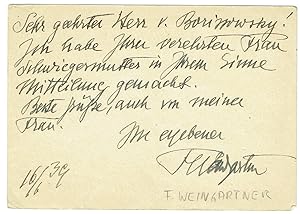 Sehr geehrter Herr v. Borisowsky!
Ich habe Ihrer verehrten Frau
Schwiegermutter in Ihrem Sinne
Mitteilung gemacht.
Beste Grüße, auch von meiner
Frau.
Ihr ergebener
FWeingartner
16/6 39
F. WEINGARTNER